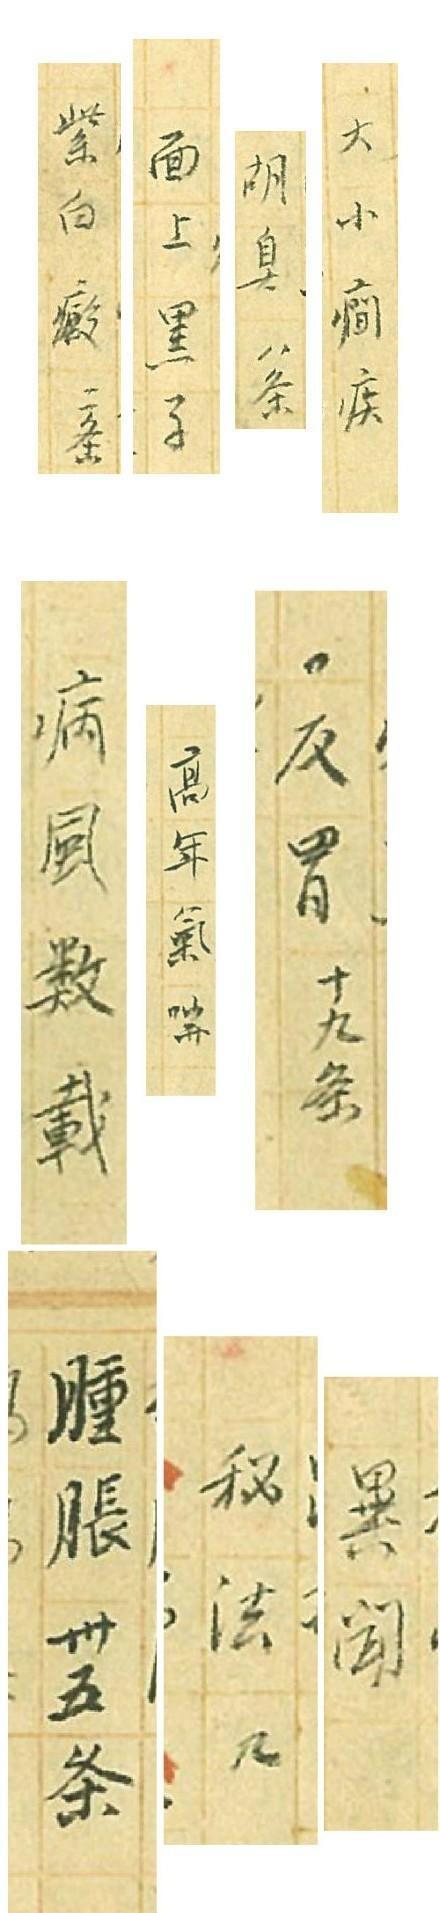 大小癎疾
胡臭八条
面上黒子
紫白癜二条
反胃十九条
高年氣喘
病風数載
異聞
秘法
腫脹卅五条